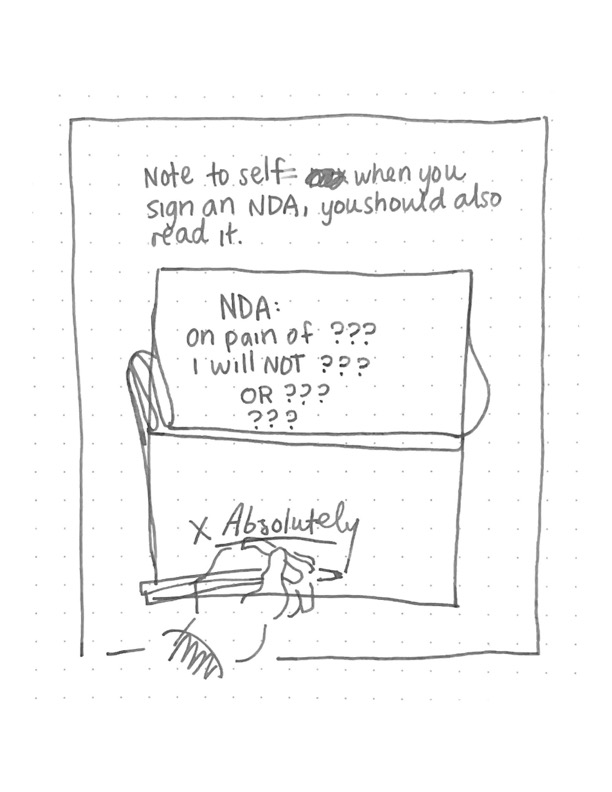 Note to self= when you
sign an NDA, you should also
read it.
NDA:
on pain of ???
I will NOT ???
OR ???
???
X Absolutely